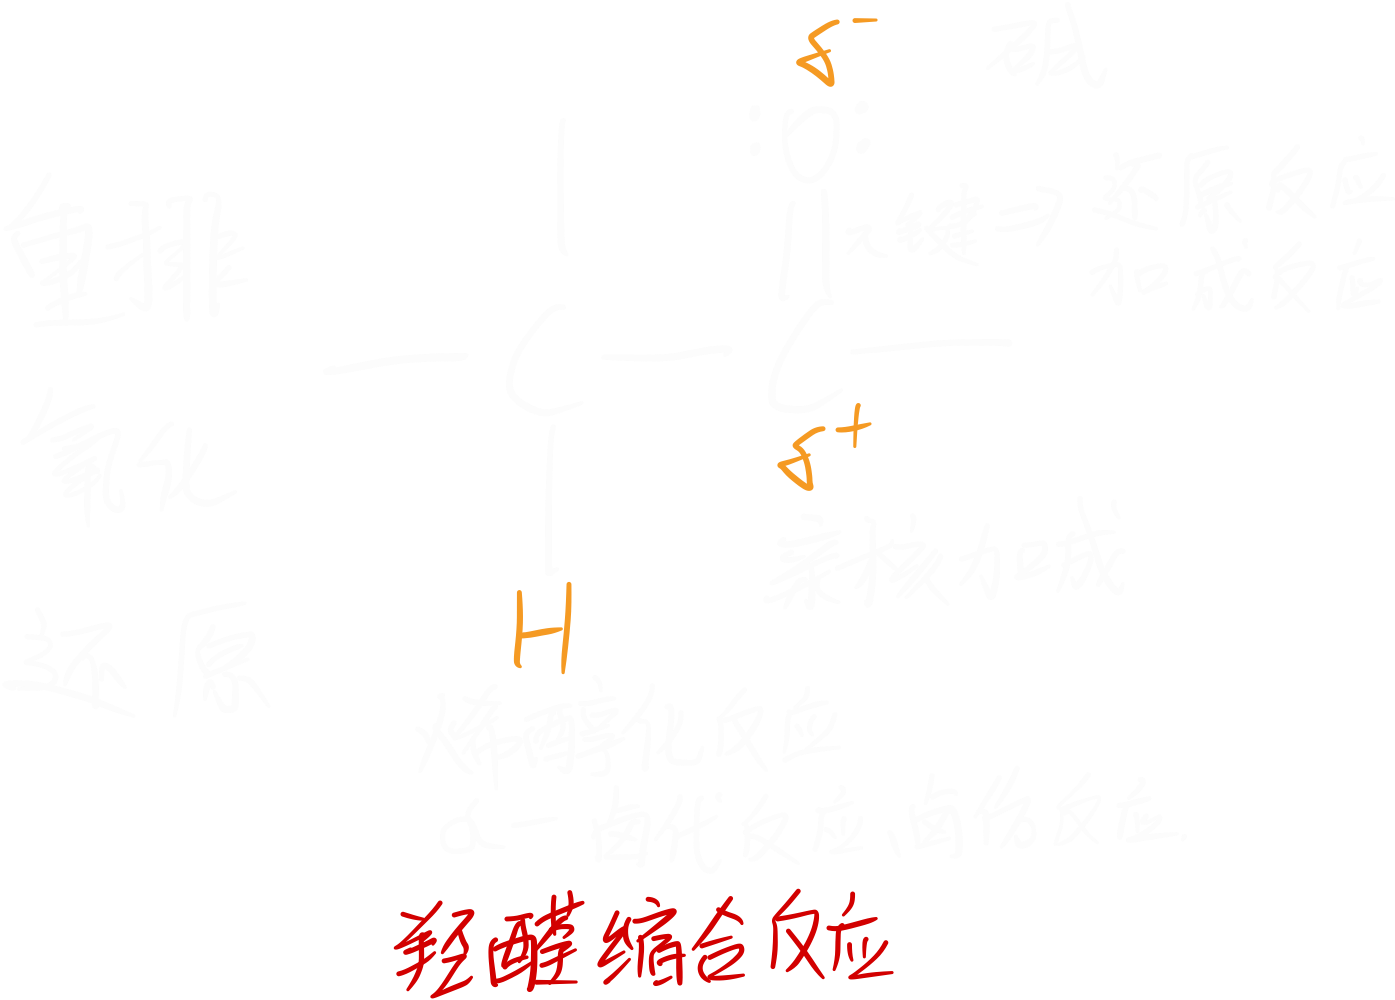 δ⁻ 碱
:O:
重排
π键⇒还原反应
加成反应
C C
δ⁺
氧化
亲核加成
H
还原
烯醇化反应
α-卤代反应、卤仿反应.
羟醛缩合反应